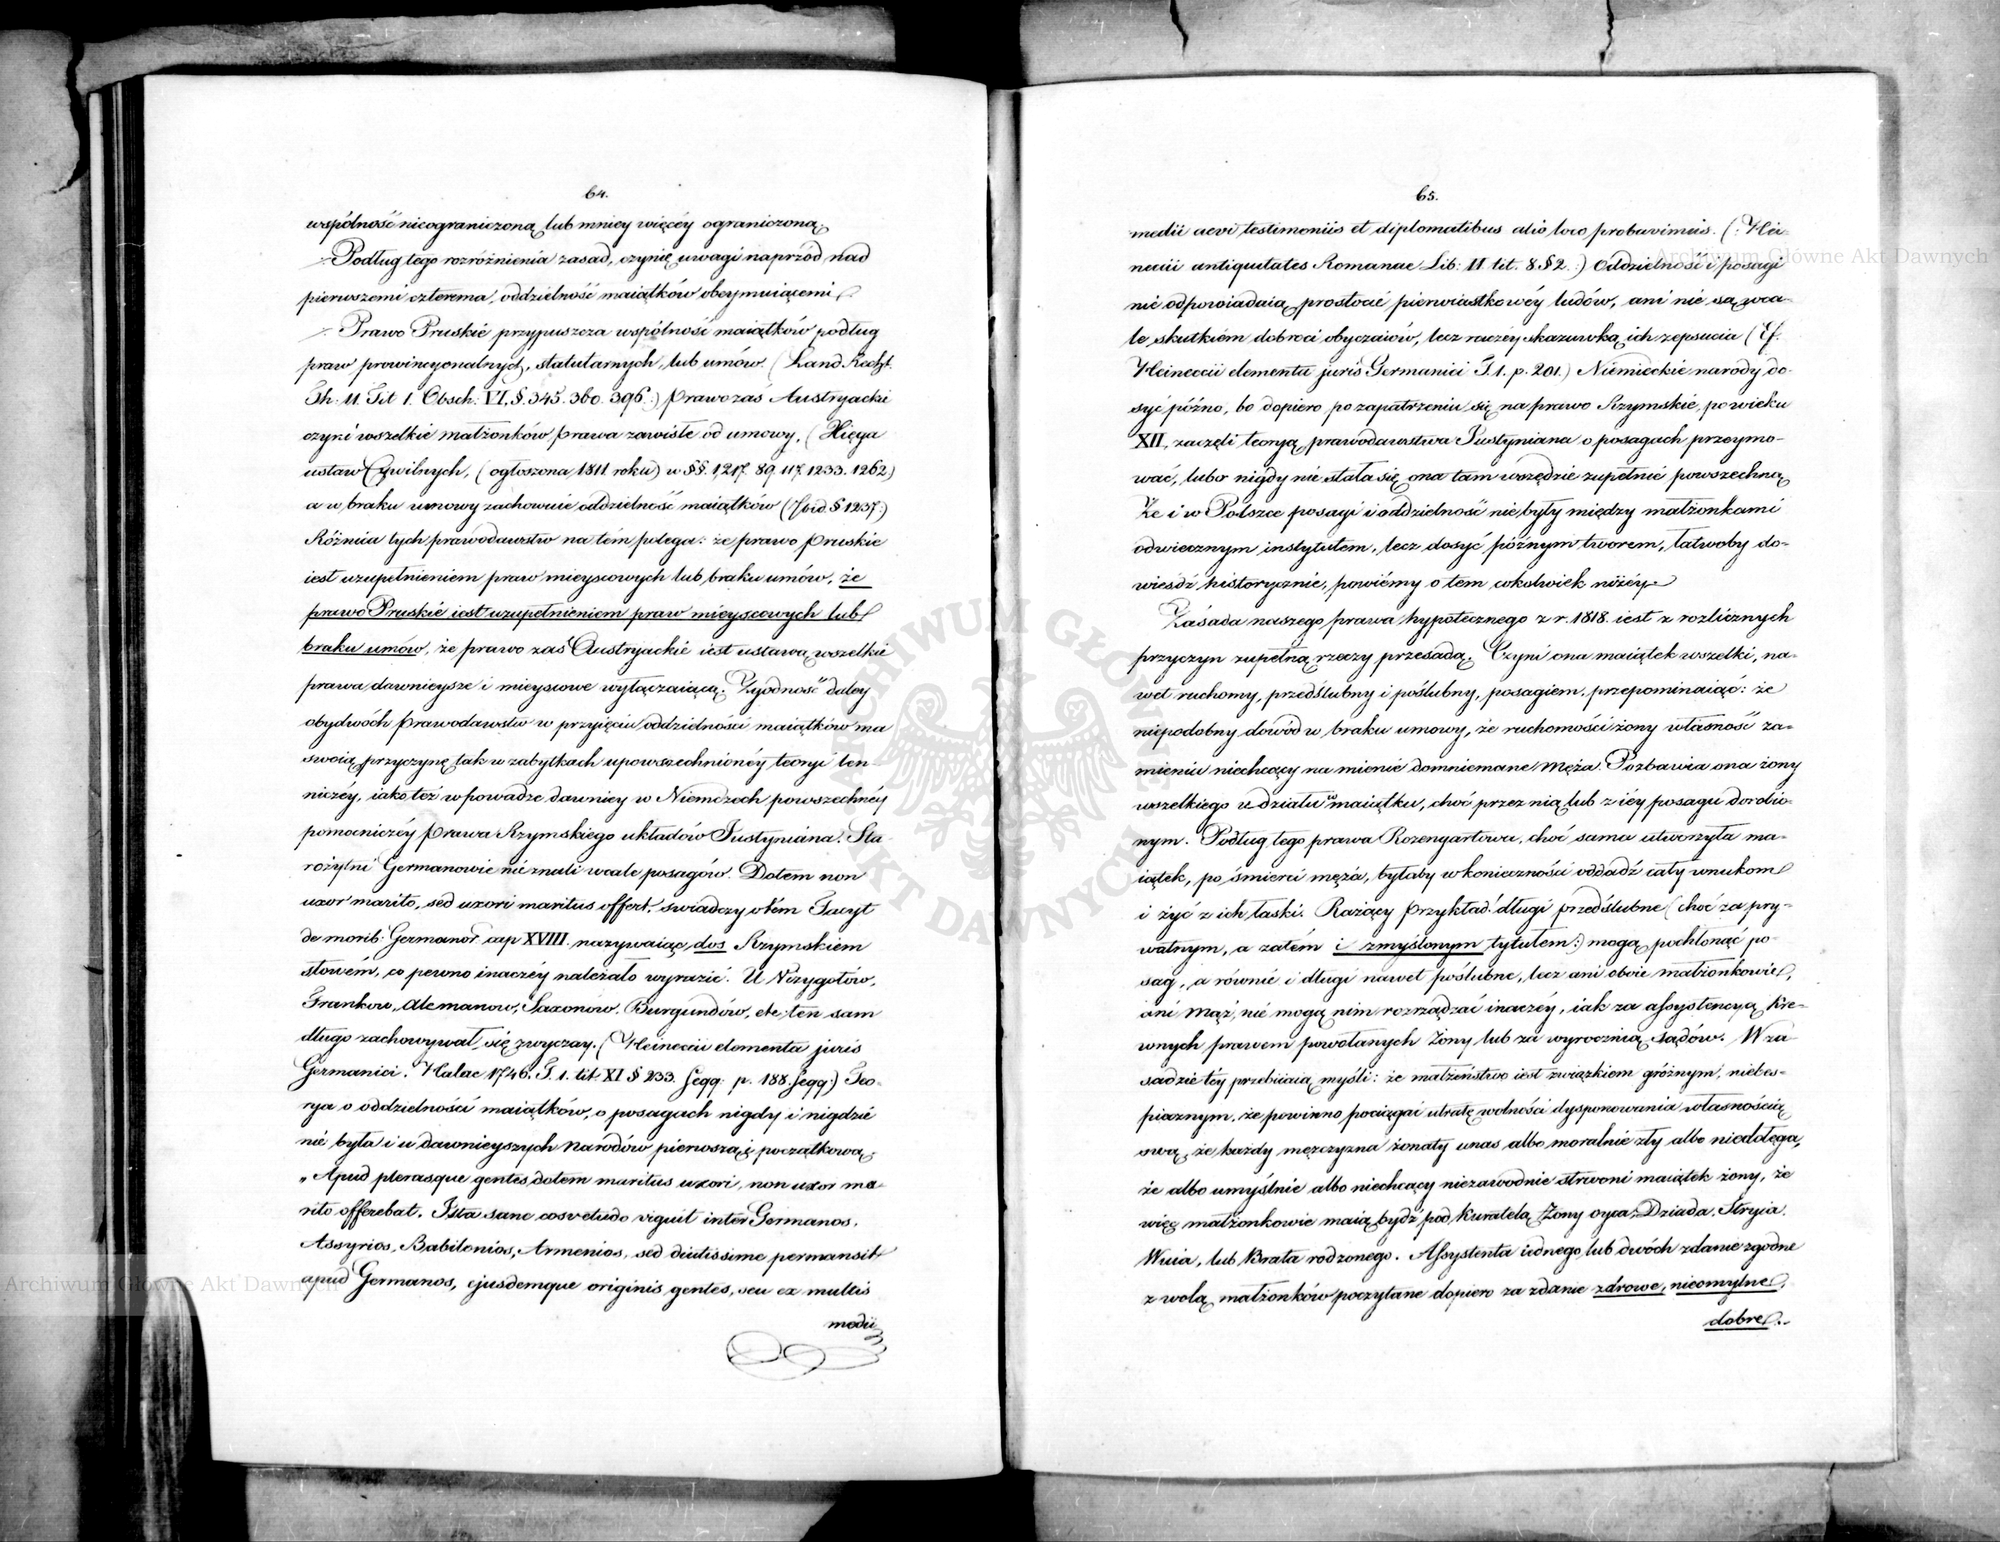 64.
wspólność nieograniczoną lub mniey więcéy ograniczoną
Podług tego rozróżnienia zasad, czynię uwagi naprzód nad
pierwszemi czterema, oddzielność maiątków obeymuiącemi
Prawo Pruskié przypuszcza wspólność maiątków podług
praw prowincyonalnych, statutarnych, lub umów. (Land. Recht.
Th. II. Tit I. Obsch: VI, §. 345. 360. 396.:) Prawo zaś Austryackie
czyni wszelkie małżonków prawa zawisłe od umowy, (Xięga
ustaw Cywilnych, (ogłoszona 1811 roku) w §§. 1217. 89. 117. 1233. 1262)
a w braku umowy zachowuie oddzielność maiątków (Ibid § 1237:)
Różnica tych prawodawstw na tém polega: że prawo pruskie
iest uzupełnieniem praw mieyscowych lub braku umów, że
prawo Pruskié iest uzupełnieniem praw mieyscowych lub
braku umów, że prawo zaś Austryackié iest ustawą wszelkie
prawa dawnieysze i mieyscowe wyłączaiącą. Zgodność daley
obydwóch prawodawstw w przyięciu oddzielności maiątków ma
swoią przyczynę tak w zabytkach upowszechnionéy teoryi len-
niczéy, iako téż w powadze dawniey w Niemczech powszechnéy
pomocniczéy prawa Rzymskiego układów Justyniana. Sta-
rożytni Germanowie nié znali wcale posagów. Dotem non
uxor marito, sed uxori maritus offert, świadczy o tém Tacyt
de morib: Germanor. cap XVIII. nazywaiąc dos Rzymskiem
słowém, co pewno inaczéy należało wyrazić. U Wizygotów,
Franków, Alemanow, Saxonów, Burgundów, etc. ten sam
długo zachowywał się zwyczay. (Heineccii elementa juris
Germanici. Halae 1746. T. 1. tit. XI § 233. seqq: p. 188. seqq:) Teo-
rya o oddzielności maiątków, o posagach nigdy i nigdzié
nié była i u dawnieyszych Narodów pierwszą i początkową.
„Apud plerasque gentes dotem maritus uxori, non uxor ma-
rito offerebat. Ista sane cosvetudo viguit inter Germanos,
Assyrios, Babilonios, Armenios, sed diutissime permansit
apud Germanos, ejusdemque originis gentes, seu ex multis
medii
65.
medii aevi testimoniis et diplomatibus alio loco probavimus. (: Hei-
neccii antiquitates Romanae Lib: II tit. 8. § 2.:) Oddzielność i posagi
nié odpowiadaią prostocié pierwiastkowéy ludów, ani nié są wca-
le skutkiém dobroci obyczaiów, lecz raczéy skazuwką ich zepsucia (Cf.
Heineccii elementa juris Germanici T. 1. p. 201.) Niemieckié narody do-
syć późno, bo dopiero po zapatrzeniu się na prawo Rzymskié, po wieku
XII, zaczęli teoryą prawodawstwa Justyniana o posagach przeymo-
wać, lubo nigdy nié stała się ona tam wszędzié zupełnié powszechną
Że i w Polszce posagi i oddzielność niebyły między małżonkami
odwiecznym instytutem, lecz dosyć póżnym tworem, łatwoby do-
wieśdź historycznie, powiémy o tem cokolwiek niżéy.
Zásada naszego prawa hypotecznego z r. 1818. iest z rozlicznych
przyczyn zupełną rzeczy przesadą. Czyni ona maiątek wszelki, na-
wet ruchomy, przedślubny i poślubny, posagiem, przepominaiąc: że
niepodobny dowód w braku umowy, że ruchomości żony własność za-
mienia niechcący na mienié domniemane Męża. Pozbawia ona żony
wszelkiego udziału w maiątku, choć przez nią lub z iéy posagu dorobio-
nym. Podług tego prawa Rozengartowa, choć sama utworzyła ma-
iątek, po śmierci męża, byłaby w konieczności oddadź cały wnukom
i żyć z ich łaski. Rażący przykład. długi przedślubne (choć za pry-
watnym, a zatém i zmyślonym tytułem:) mogą pochłonąć po-
sag, a równié i długi nawet poślubne, lecz ani oboie małżonkowie,
ani Mąż, nié mogą nim rozrządzać inaczéy, iak za assystencyą Kre-
wnych prawem powołanych Żony lub za wyrocznią Sądów. W za-
sadzie téy przebiiaią myśli: że małżeństwo iest związkiem gróżnym, niebes-
piecznym, że powinno pociągać utratę wolności dysponowania własnością
swą, że każdy mężczyzna żonaty unas albo moralnie zły albo niedołęga,
że albo umyślnie albo niechcący niezawodnie strwoni maiątek żony, że
więc małżonkowie maią bydź pod Kuratelą Żony oyca, Dziada, Stryia,
Wuia, lub Brata rodzonego. Assystenta iednego lub dwóch zdanie zgodne
z wolą małżonków poczytane dopiero za zdanie zdrowe, nieomylne,
dobre.